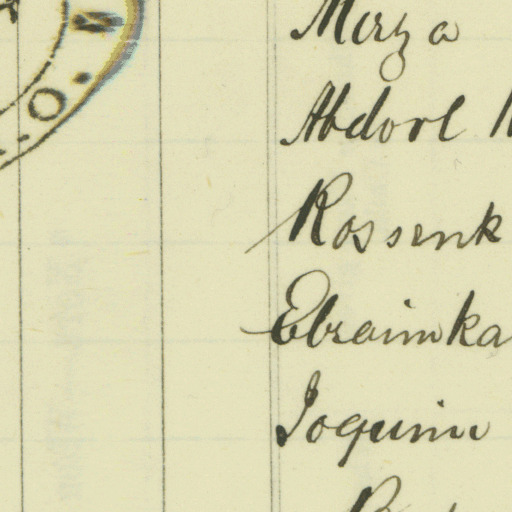 Mirza
Abdorl
Rossenk
Ebraimka
Joquim